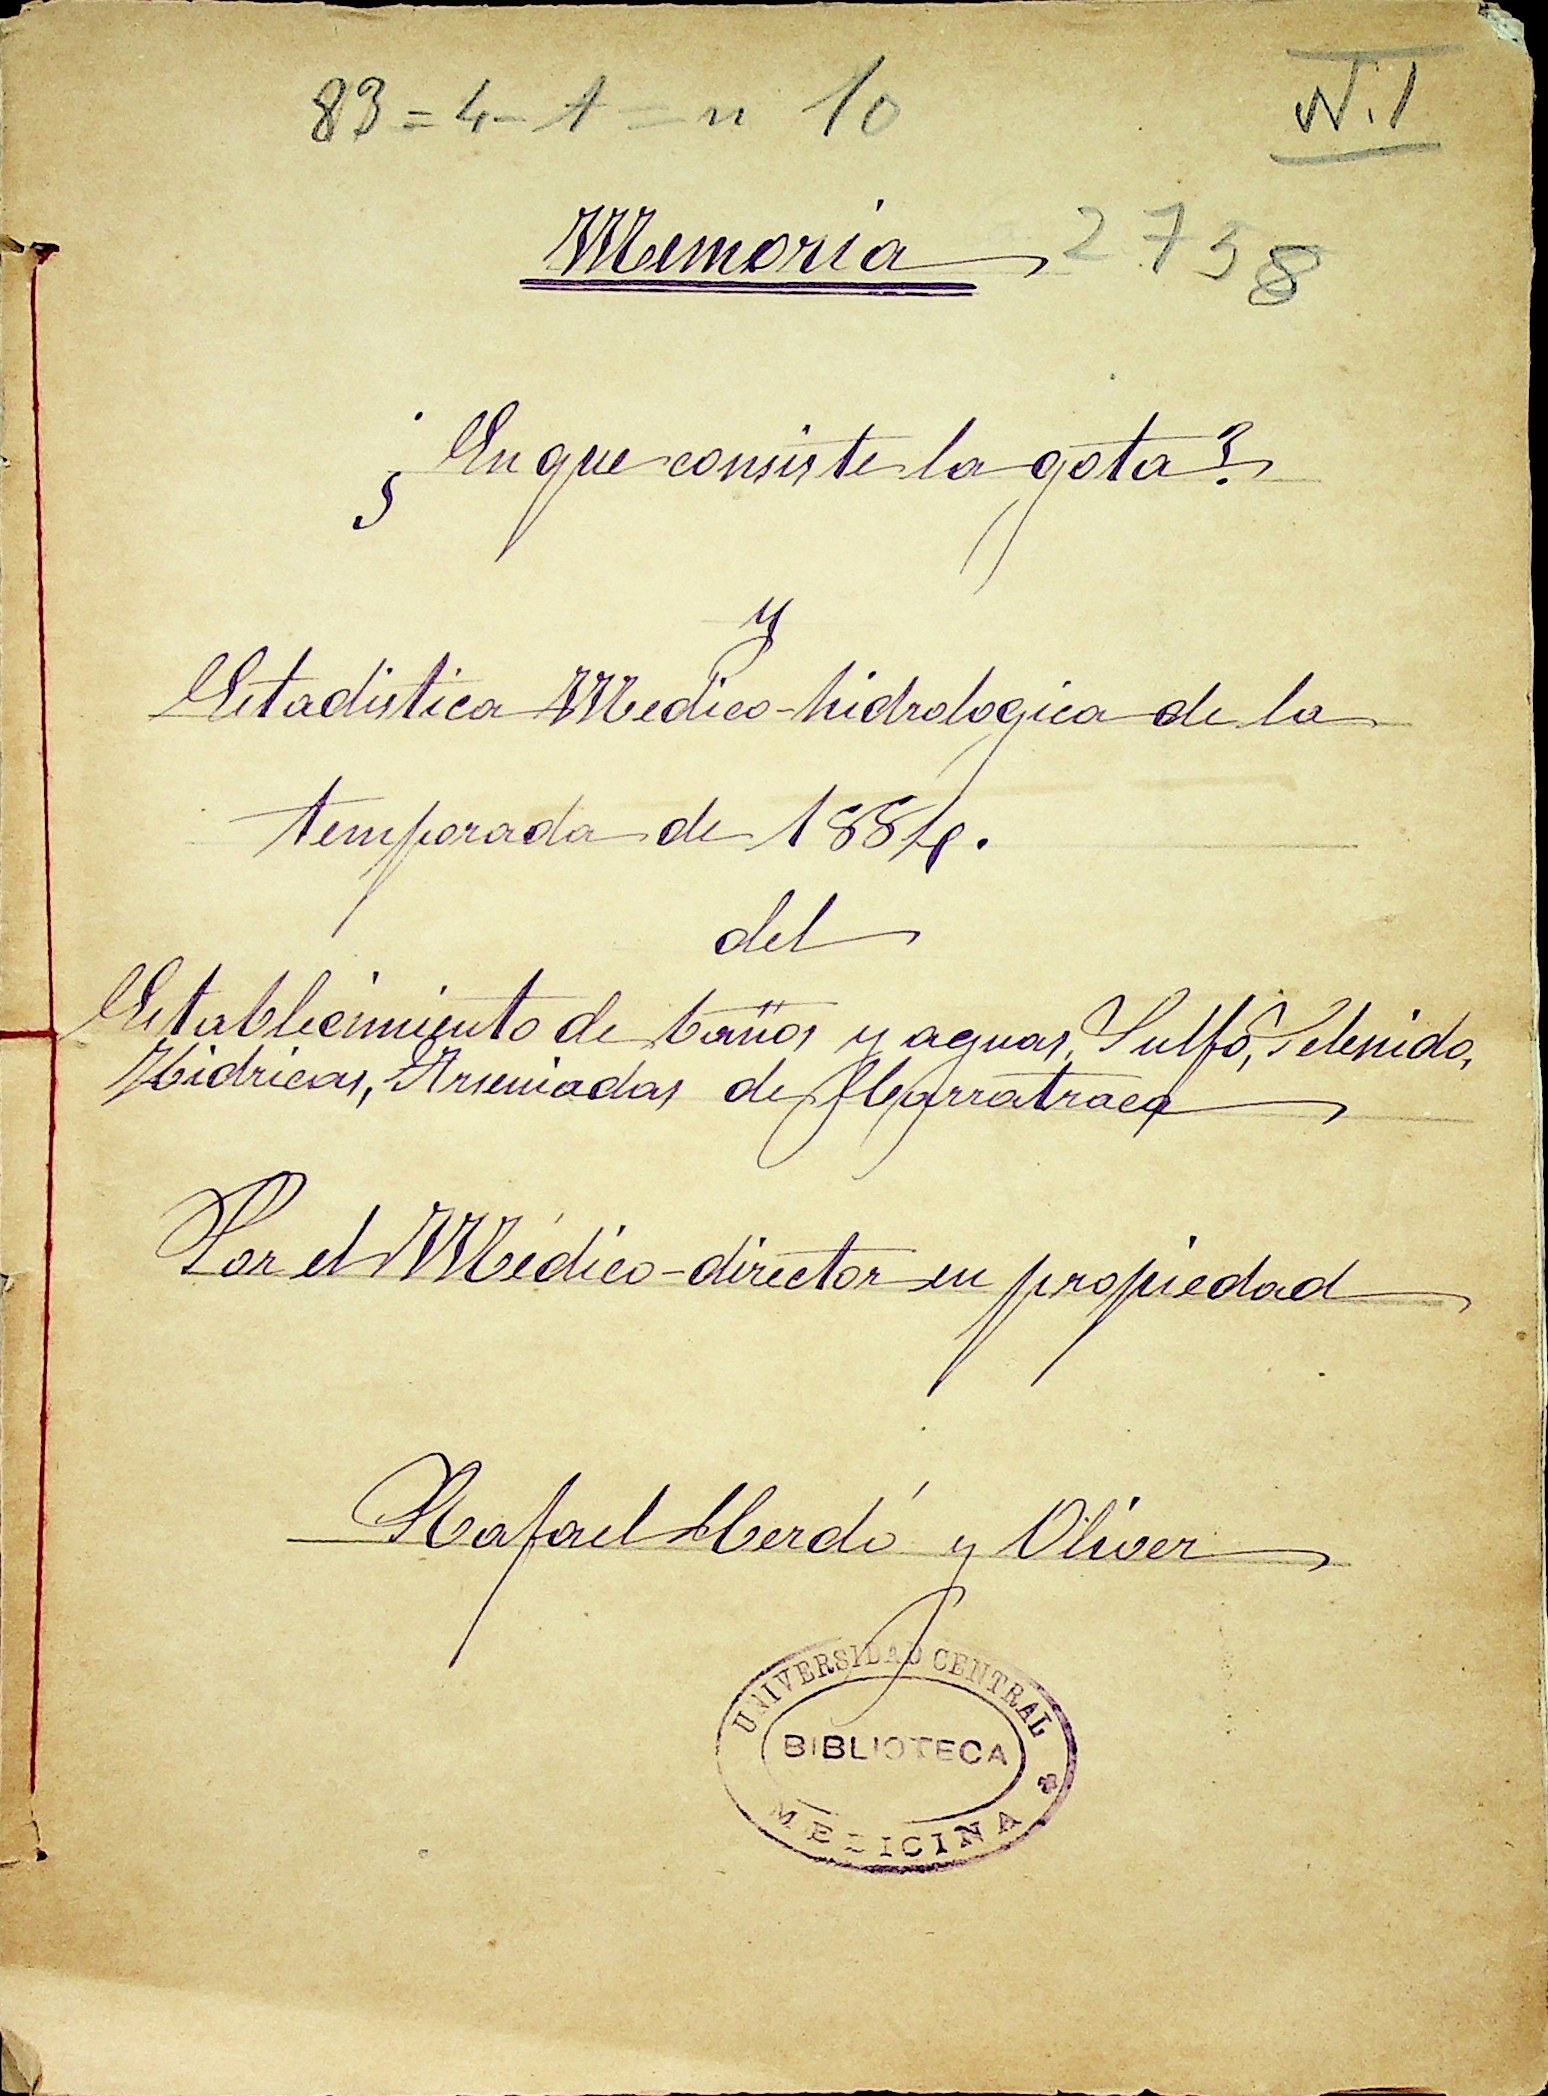 83 = 4 - 1 = n 10
N. 1
Memoria
2758
¿En que consiste la gota?
y
Estadistica Medico-hidrologica de la
temporada de 1884.
del
Establecimiento de baños y aguas, Sulfo, Selenido,
Hidricas, Arseniadas de Carratraca
Por el Médico-director en propiedad
Rafael Cerdó y Oliver
UNIVERSIDAD CENTRAL
BIBLIOTECA
MEDICINA